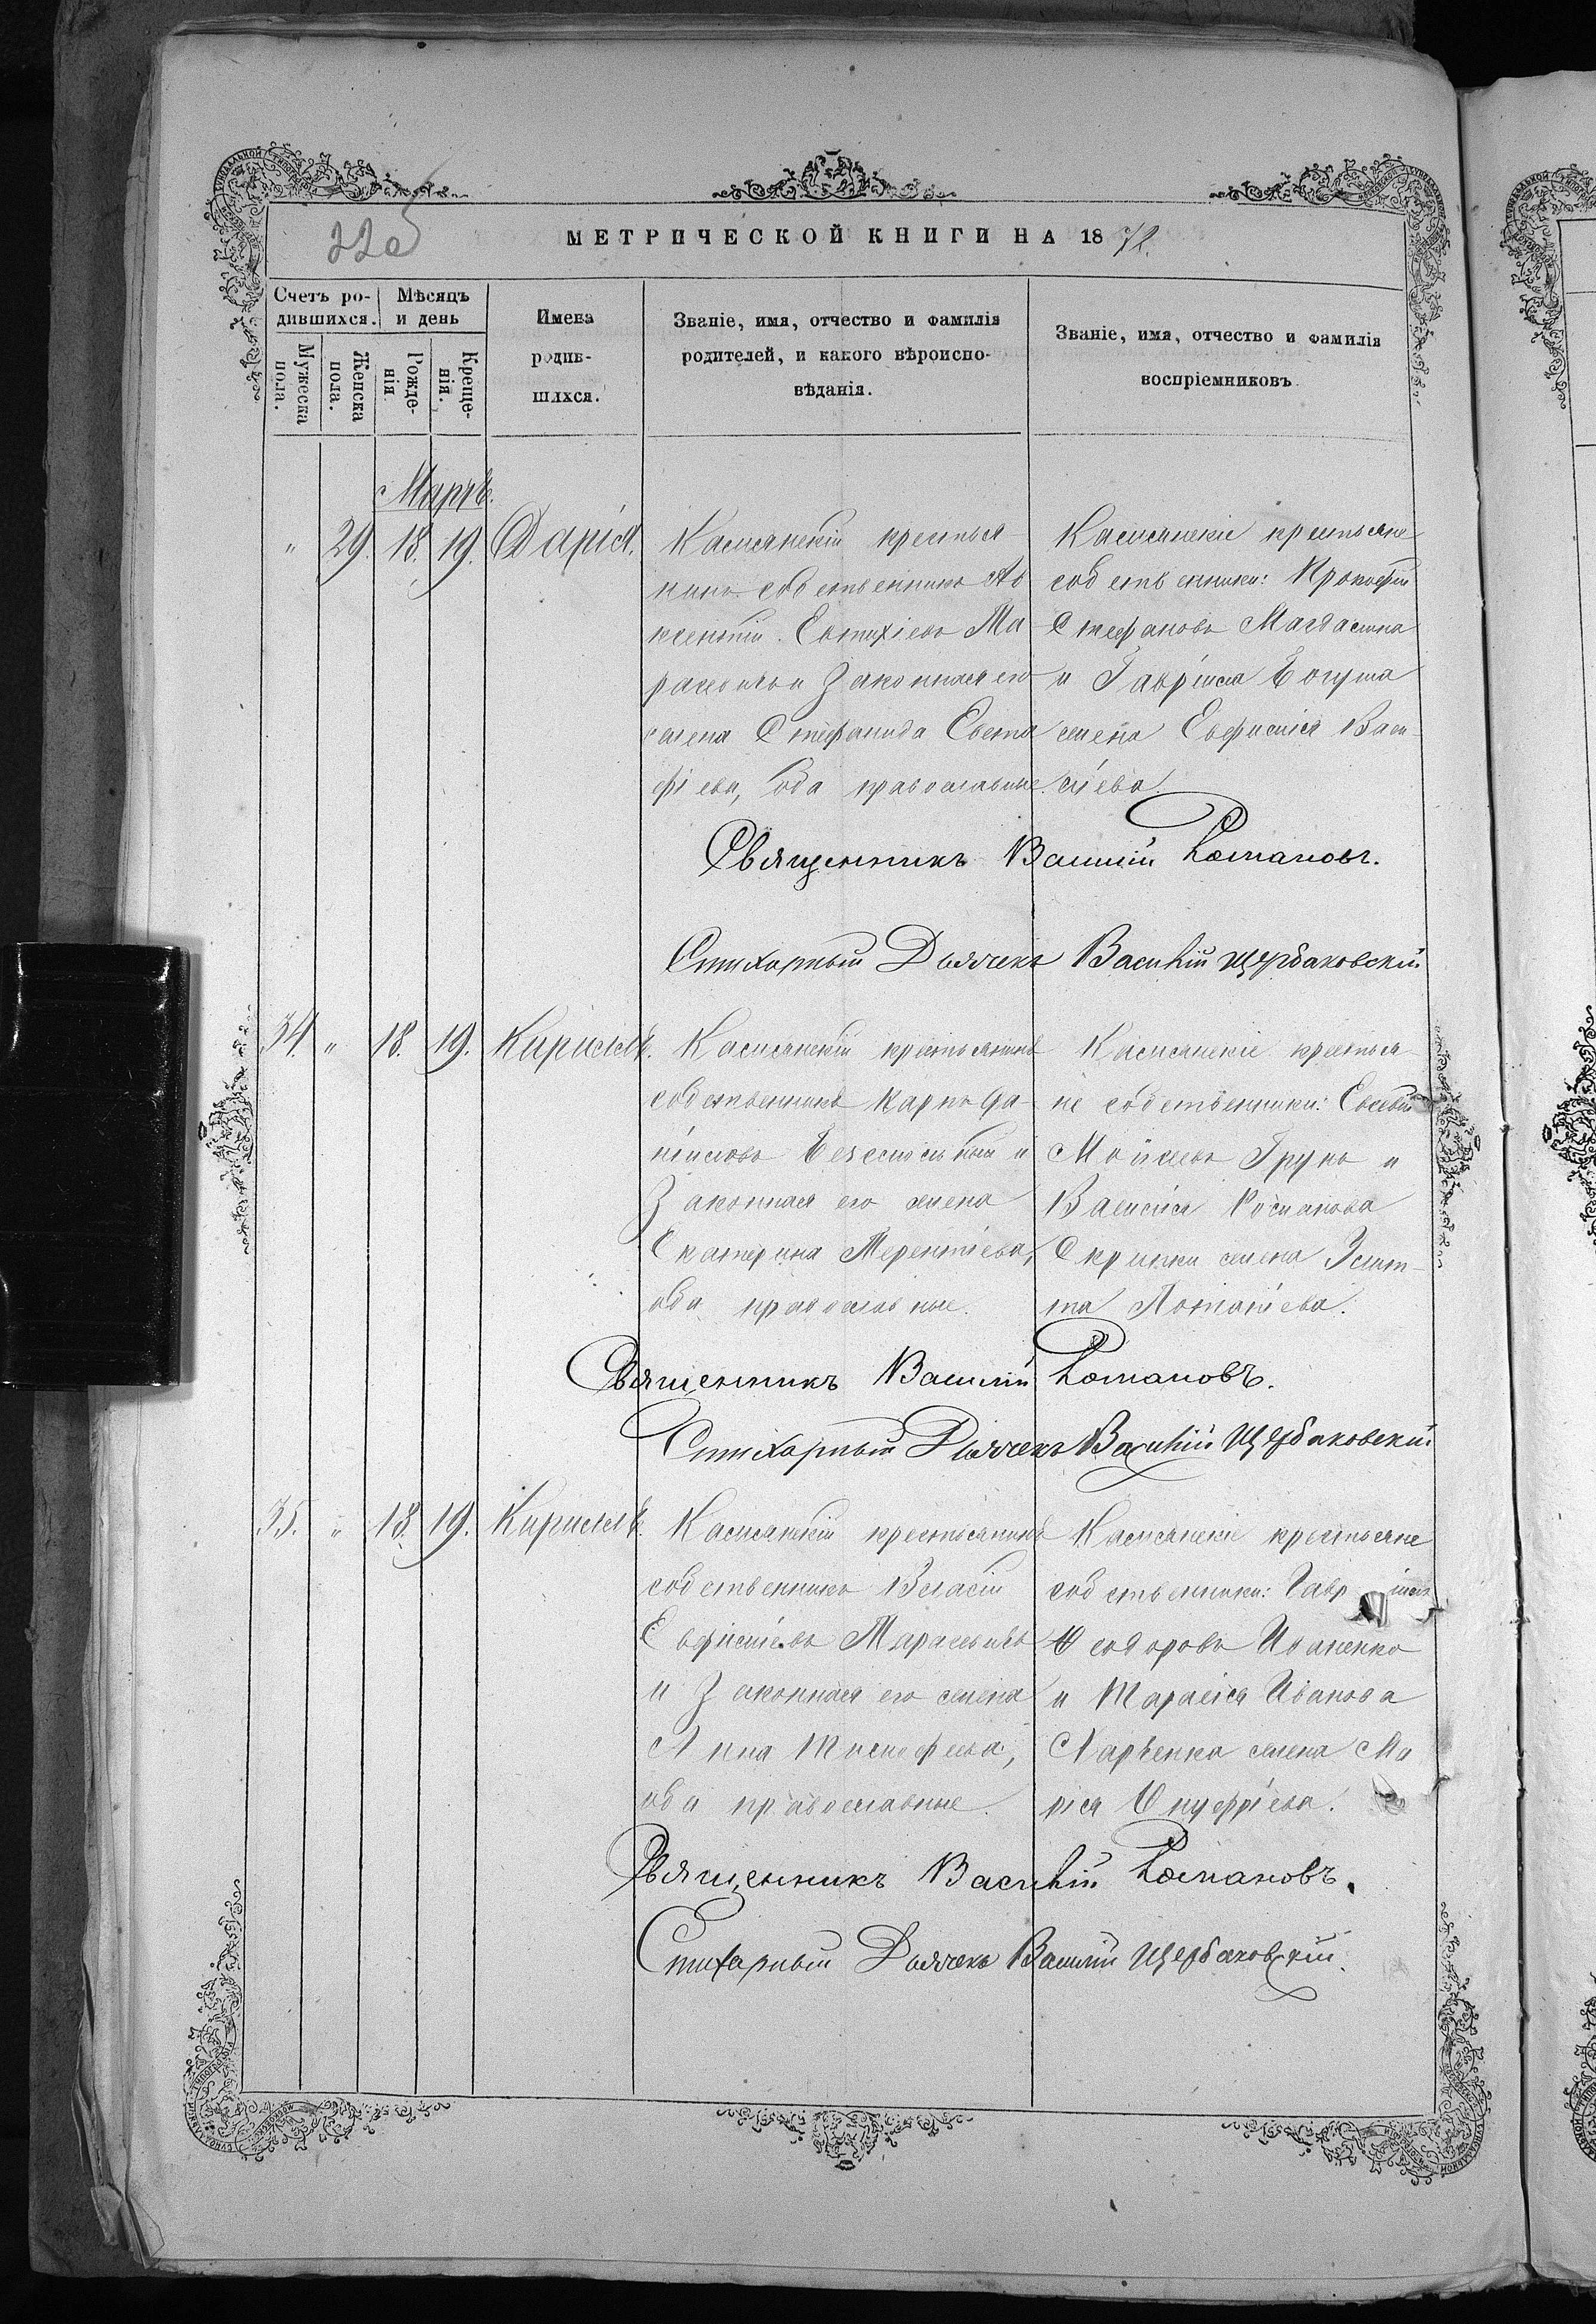 225
МЕТРИЧЕСКОЙ КНИГИ НА 1872.
Счетъ ро-
дившихся.
Мѣсяцъ
и день
Мужеска
пола.
Женска
пола.
Рожде-
нія
Креще-
нія.
Имена
родив-
шихся.
Званіе, имя, отчество и фамилія
родителей, и какого вѣроиспо-
вѣданія.
Званіе, имя, отчество и фамилія
воспріемниковъ
Мартъ.
" 29. 18. 19. Дарія.
крестья-
нинъ собственникъ Ав
ксентій Евтихіевъ Ма
и законная его
жена Стефанида Евста
фіева, оба православные.
крестьяне
собственники: Прокофій
Стефановъ
и Гавріила
жена Евфимія Васи-
ліева.
Священникъ Василій Романовъ.
Стихарный Дьячекъ Василій Щербаковскій
34. " 18. 19. Кириллъ.
крестьянинъ
собственникъ Карпъ Да-
ніиловъ и
законная его жена
Екатерина Терентіева,
оба православные.
крестья-
не собственники: Евсевій
Мойсеевъ и
Василія Романова
Скрипки жена
та Потапіева.
Священникъ Василій Романовъ.
Стихарный Дьячекъ Василій Щербаковскій
35. " 18. 19. Кириллъ.
крестьянинъ
собственникъ Власій
Евфиміевъ
и законная его жена
Анна Тимофеева,
оба православные.
крестьяне
собственники: Гавріилъ
Феодоровъ Иваненко
и Тарасія Иванова
Ларченка жена Ма
рія Онуфріева.
Священникъ Василій Романовъ.
Стихарный Дьячекъ Василій Щербаковскій.